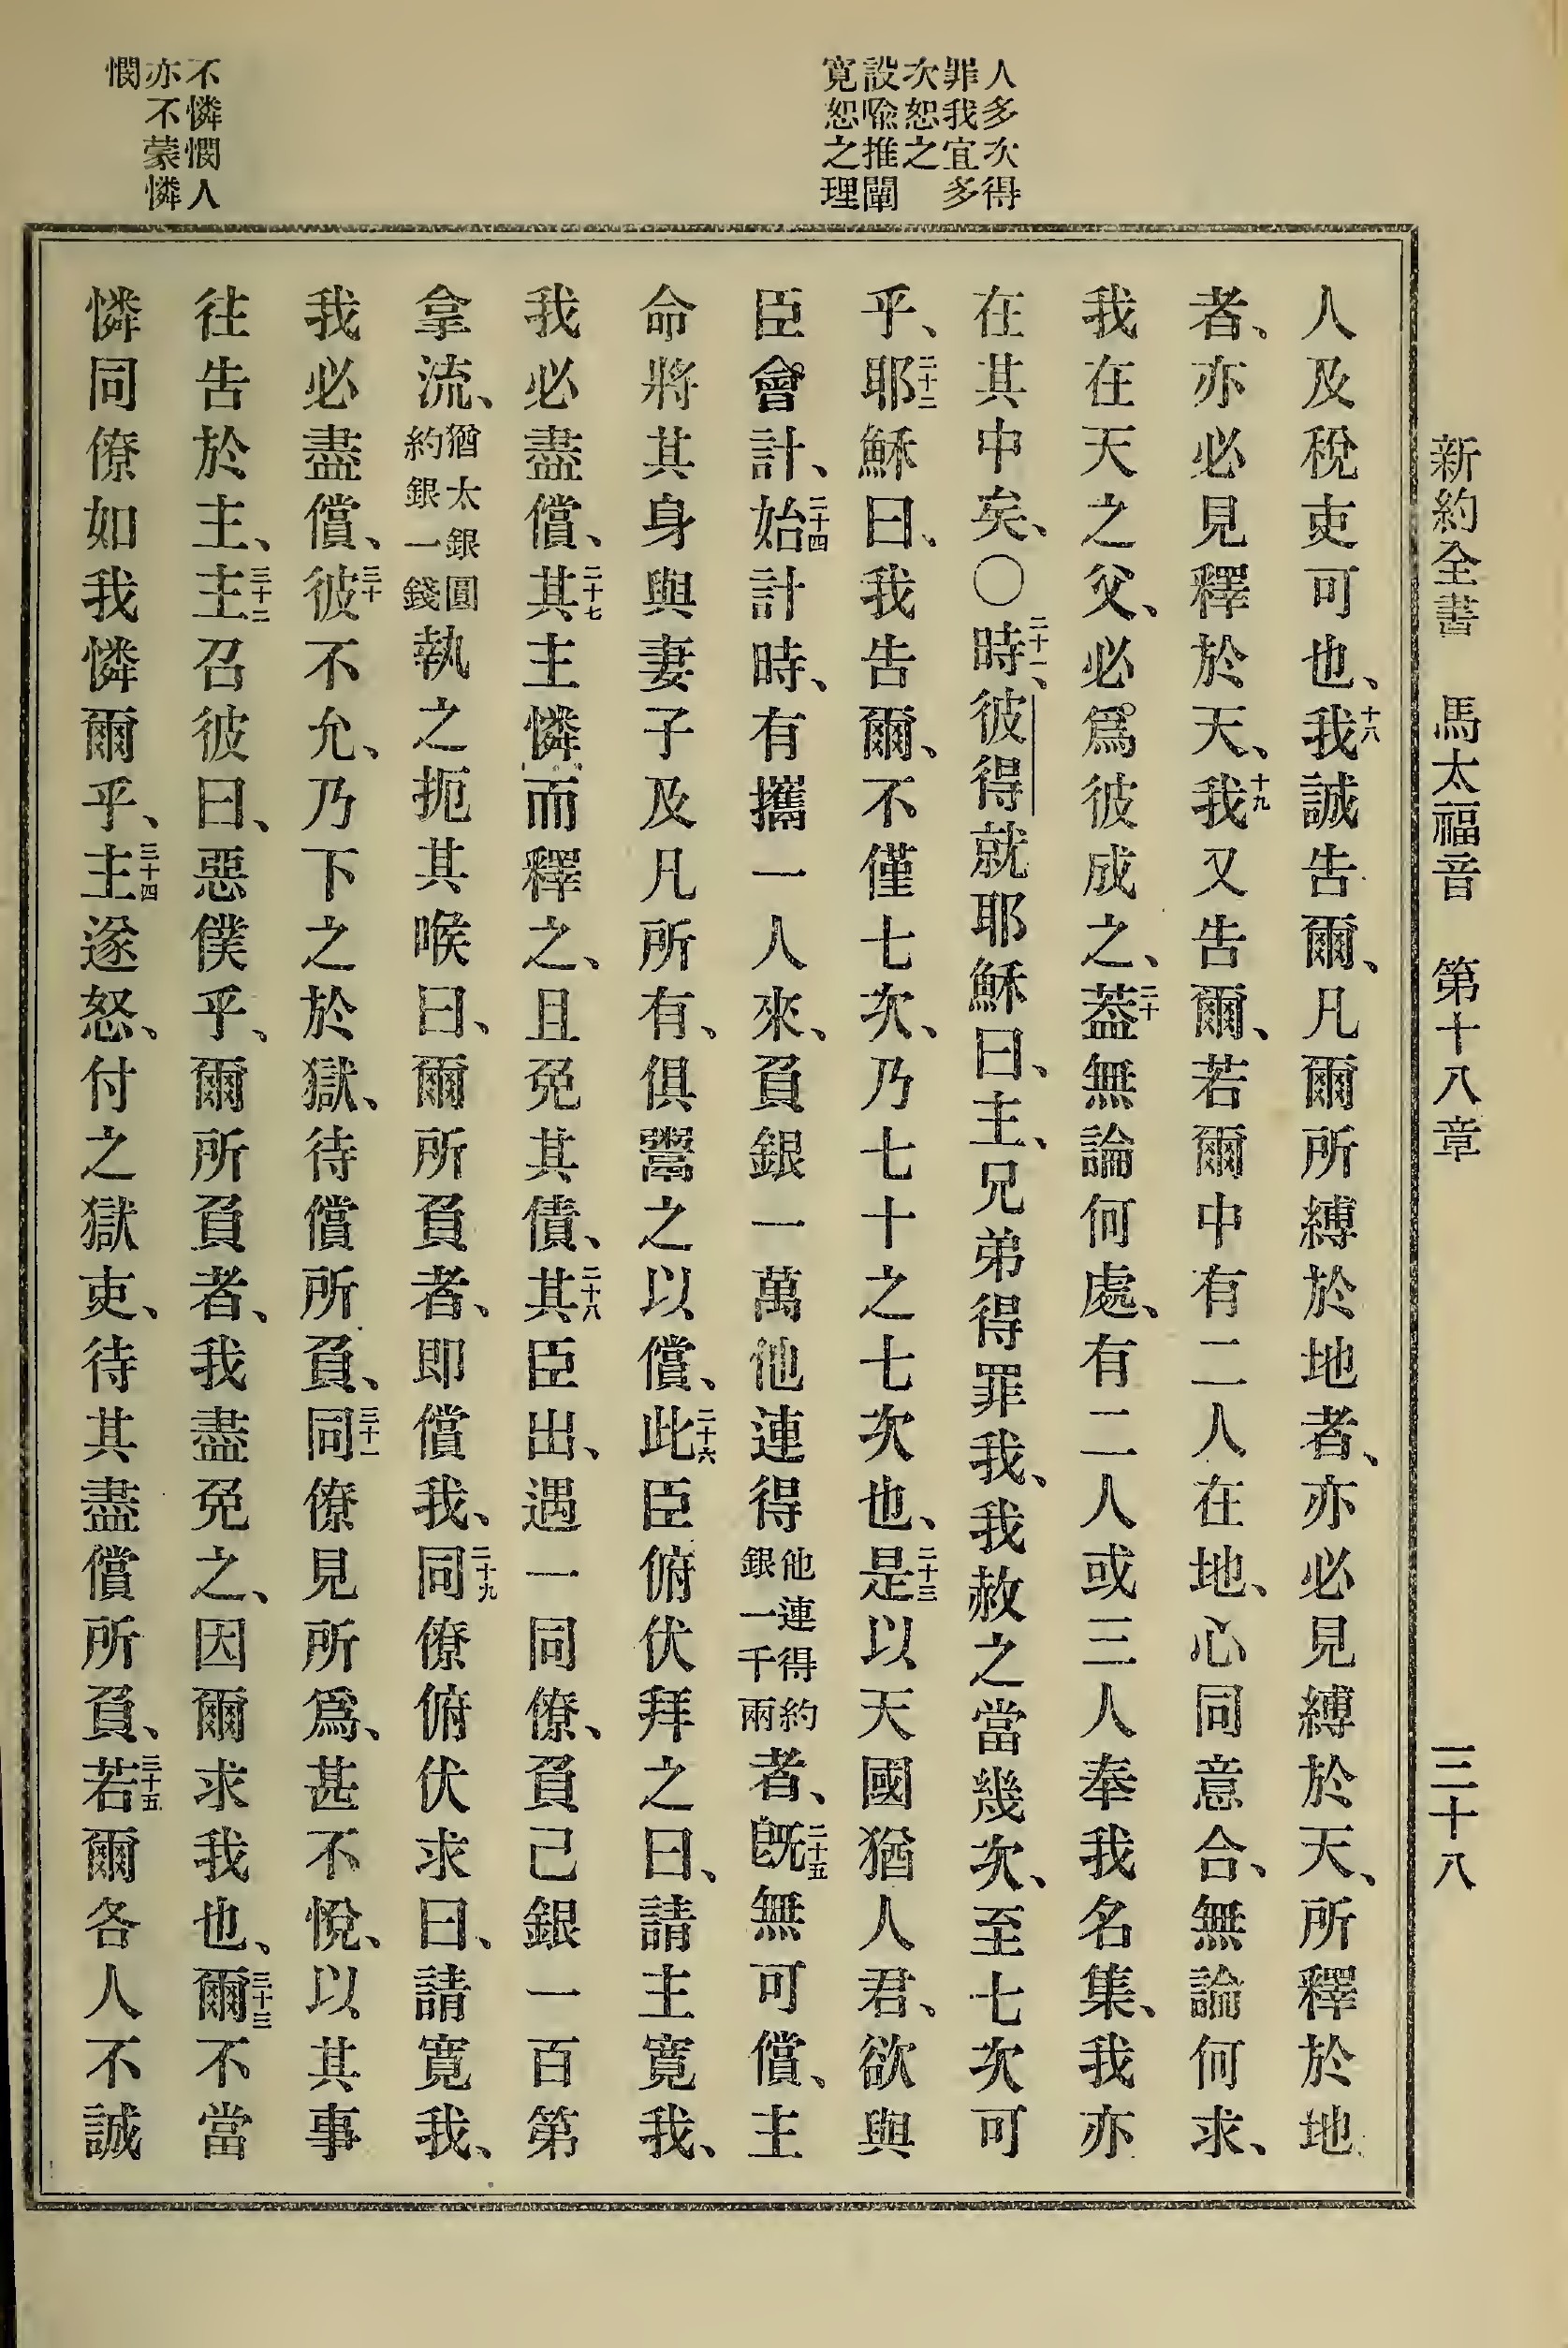 新約全書 馬太福音 第十八章 三十八
人多次得
罪我宜多
次恕之
設喩推闡
寬恕之理
不憐憫人
亦不蒙憐
憫
人及稅吏可也、十八我誠告爾、凡爾所縛於地者、亦必見縛於天、所釋於地
者、亦必見釋於天、十九我又告爾、若爾中有二人在地、心同意合、無論何求、
我在天之父、必爲彼成之、二十蓋無論何處、有二人或三人奉我名集、我亦
在其中矣、〇二十一時、彼得就耶穌曰、主、兄弟得罪我、我赦之當幾次、至七次可
乎、二十二耶穌曰、我告爾、不僅七次、乃七十之七次也、二十三是以天國猶人君、欲與
臣會計、二十四始計時、有攜一人來、負銀一萬他連得他連得約銀一千兩者、二十五旣無可償、主
命將其身與妻子及凡所有、俱鬻之以償、二十六此臣俯伏拜之曰、請主寬我、
我必盡償、二十七其主憐而釋之、且免其債、二十八其臣出、遇一同僚、負己銀一百第
拿流、猶太銀圓約銀一錢執之扼其喉曰、爾所負者、即償我、二十九同僚俯伏求曰、請寬我、
我必盡償、三十彼不允、乃下之於獄、待償所負、三十一同僚見所爲、甚不悅、以其事
往告於主、三十二主召彼曰、惡僕乎、爾所負者、我盡免之、因爾求我也、三十三爾不當
憐同僚如我憐爾乎、三十四主遂怒、付之獄吏、待其盡償所負、三十五若爾各人不誠